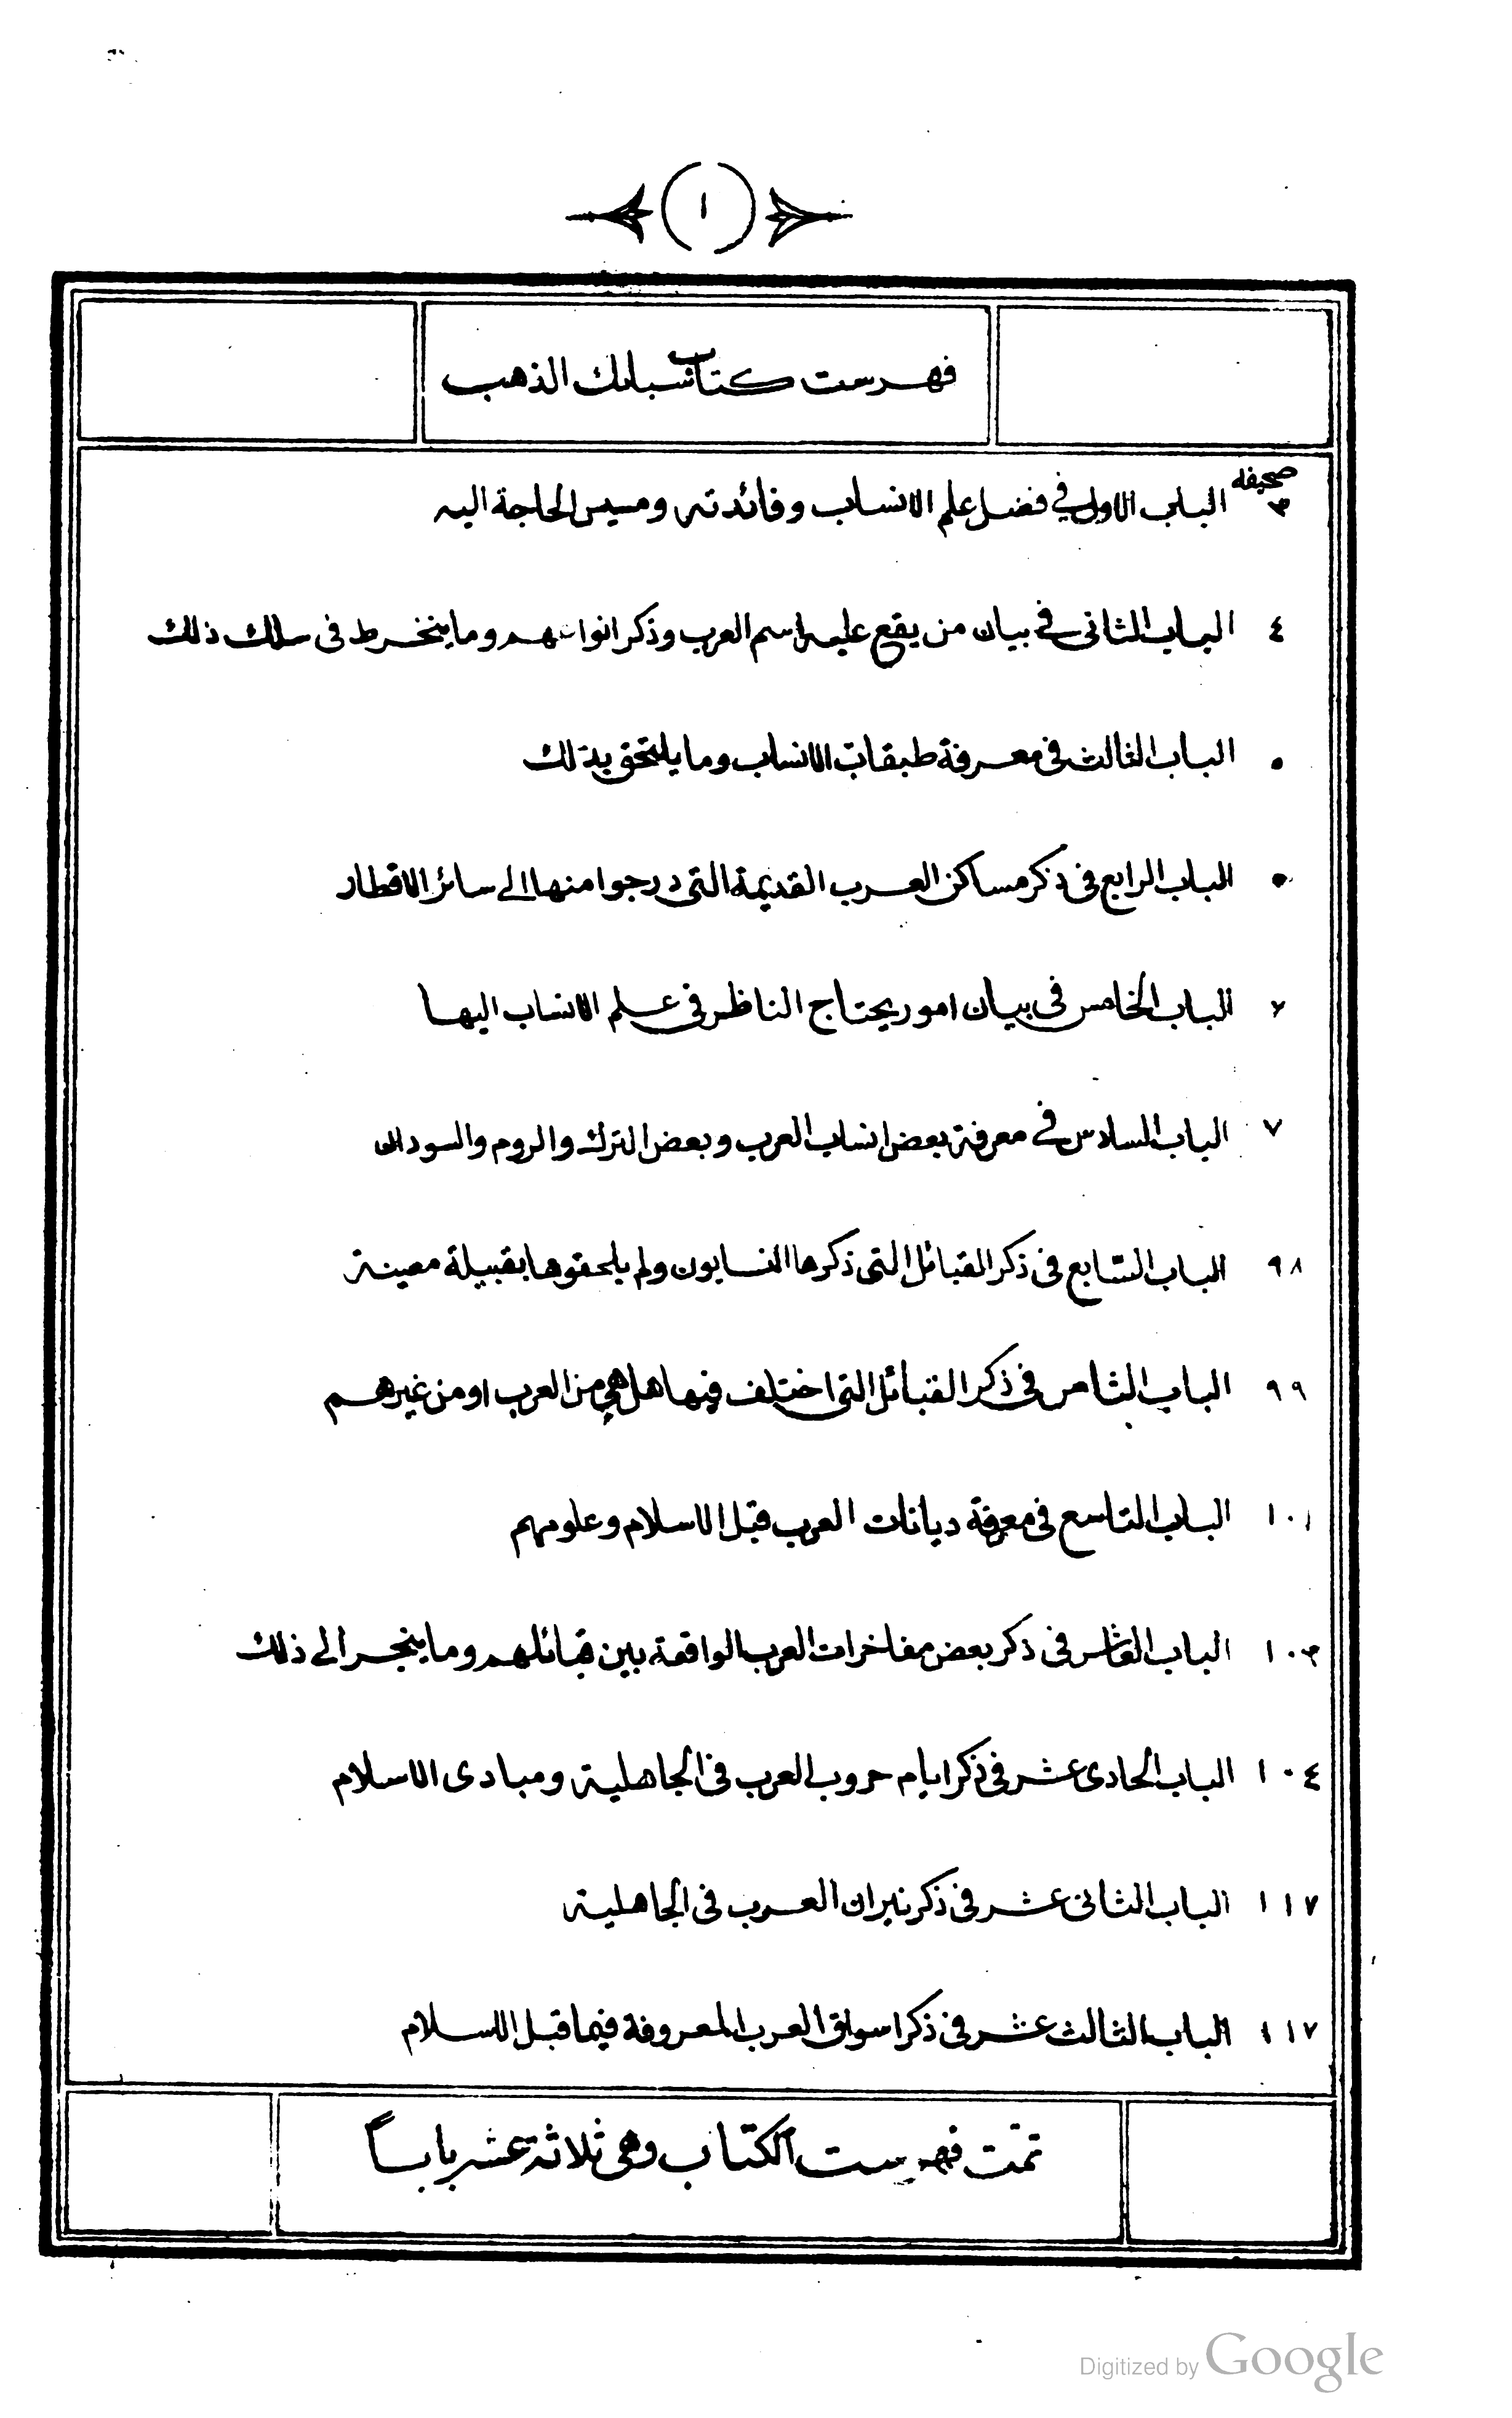 ١
فهرست كتاب سبائك الذهب
صحيفه
٣ الباب الاول في فضل علم الانساب وفائدته ومسيس الحاجة اليه
٤ الباب الثانى في بيان من يقع عليه اسم العرب وذكر انواعهم وما ينخرط فى سلك ذلك
٥ الباب الثالث فى معرفة طبقات الانساب وما يلتحق بذلك
٥ الباب الرابع فى ذكر مساكن العرب القديمة التى درجوا منها الى سائر الاقطار
٦ الباب الخامس فى بيان امور يحتاج الناظر فى علم الانساب اليها
٧ الباب السادس في معرفة بعض انساب العرب وبعض الترك والروم والسودان
٩٨ الباب السّابع فى ذكر القبائل التى ذكرها النسابون ولم يلحقوها بقبيلة معينة
٩٩ الباب الثامن فى ذكر القبائل التى اختلف فيها هل هي من العرب او من غيرهم
١٠١ الباب التاسع فى معرفة ديانات العرب قبل الاسلام وعلومهم
١٠٣ الباب العاشر فى ذكر بعض مفاخرات العرب الواقعة بين قبائلهم وما ينجر الى ذلك
١٠٤ الباب الحادى عشر فى ذكر ايام حروب العرب فى الجاهلية ومبادى الاسلام
١١٧ الباب الثانى عشر فى ذكر نيران العرب فى الجاهلية
١١٧ الباب الثالث عشر فى ذكر اسواق العرب المعروفة فيما قبل الاسلام
تمّت فهرست الكتاب وهى ثلاثة عشر باباً
Digitized by Google